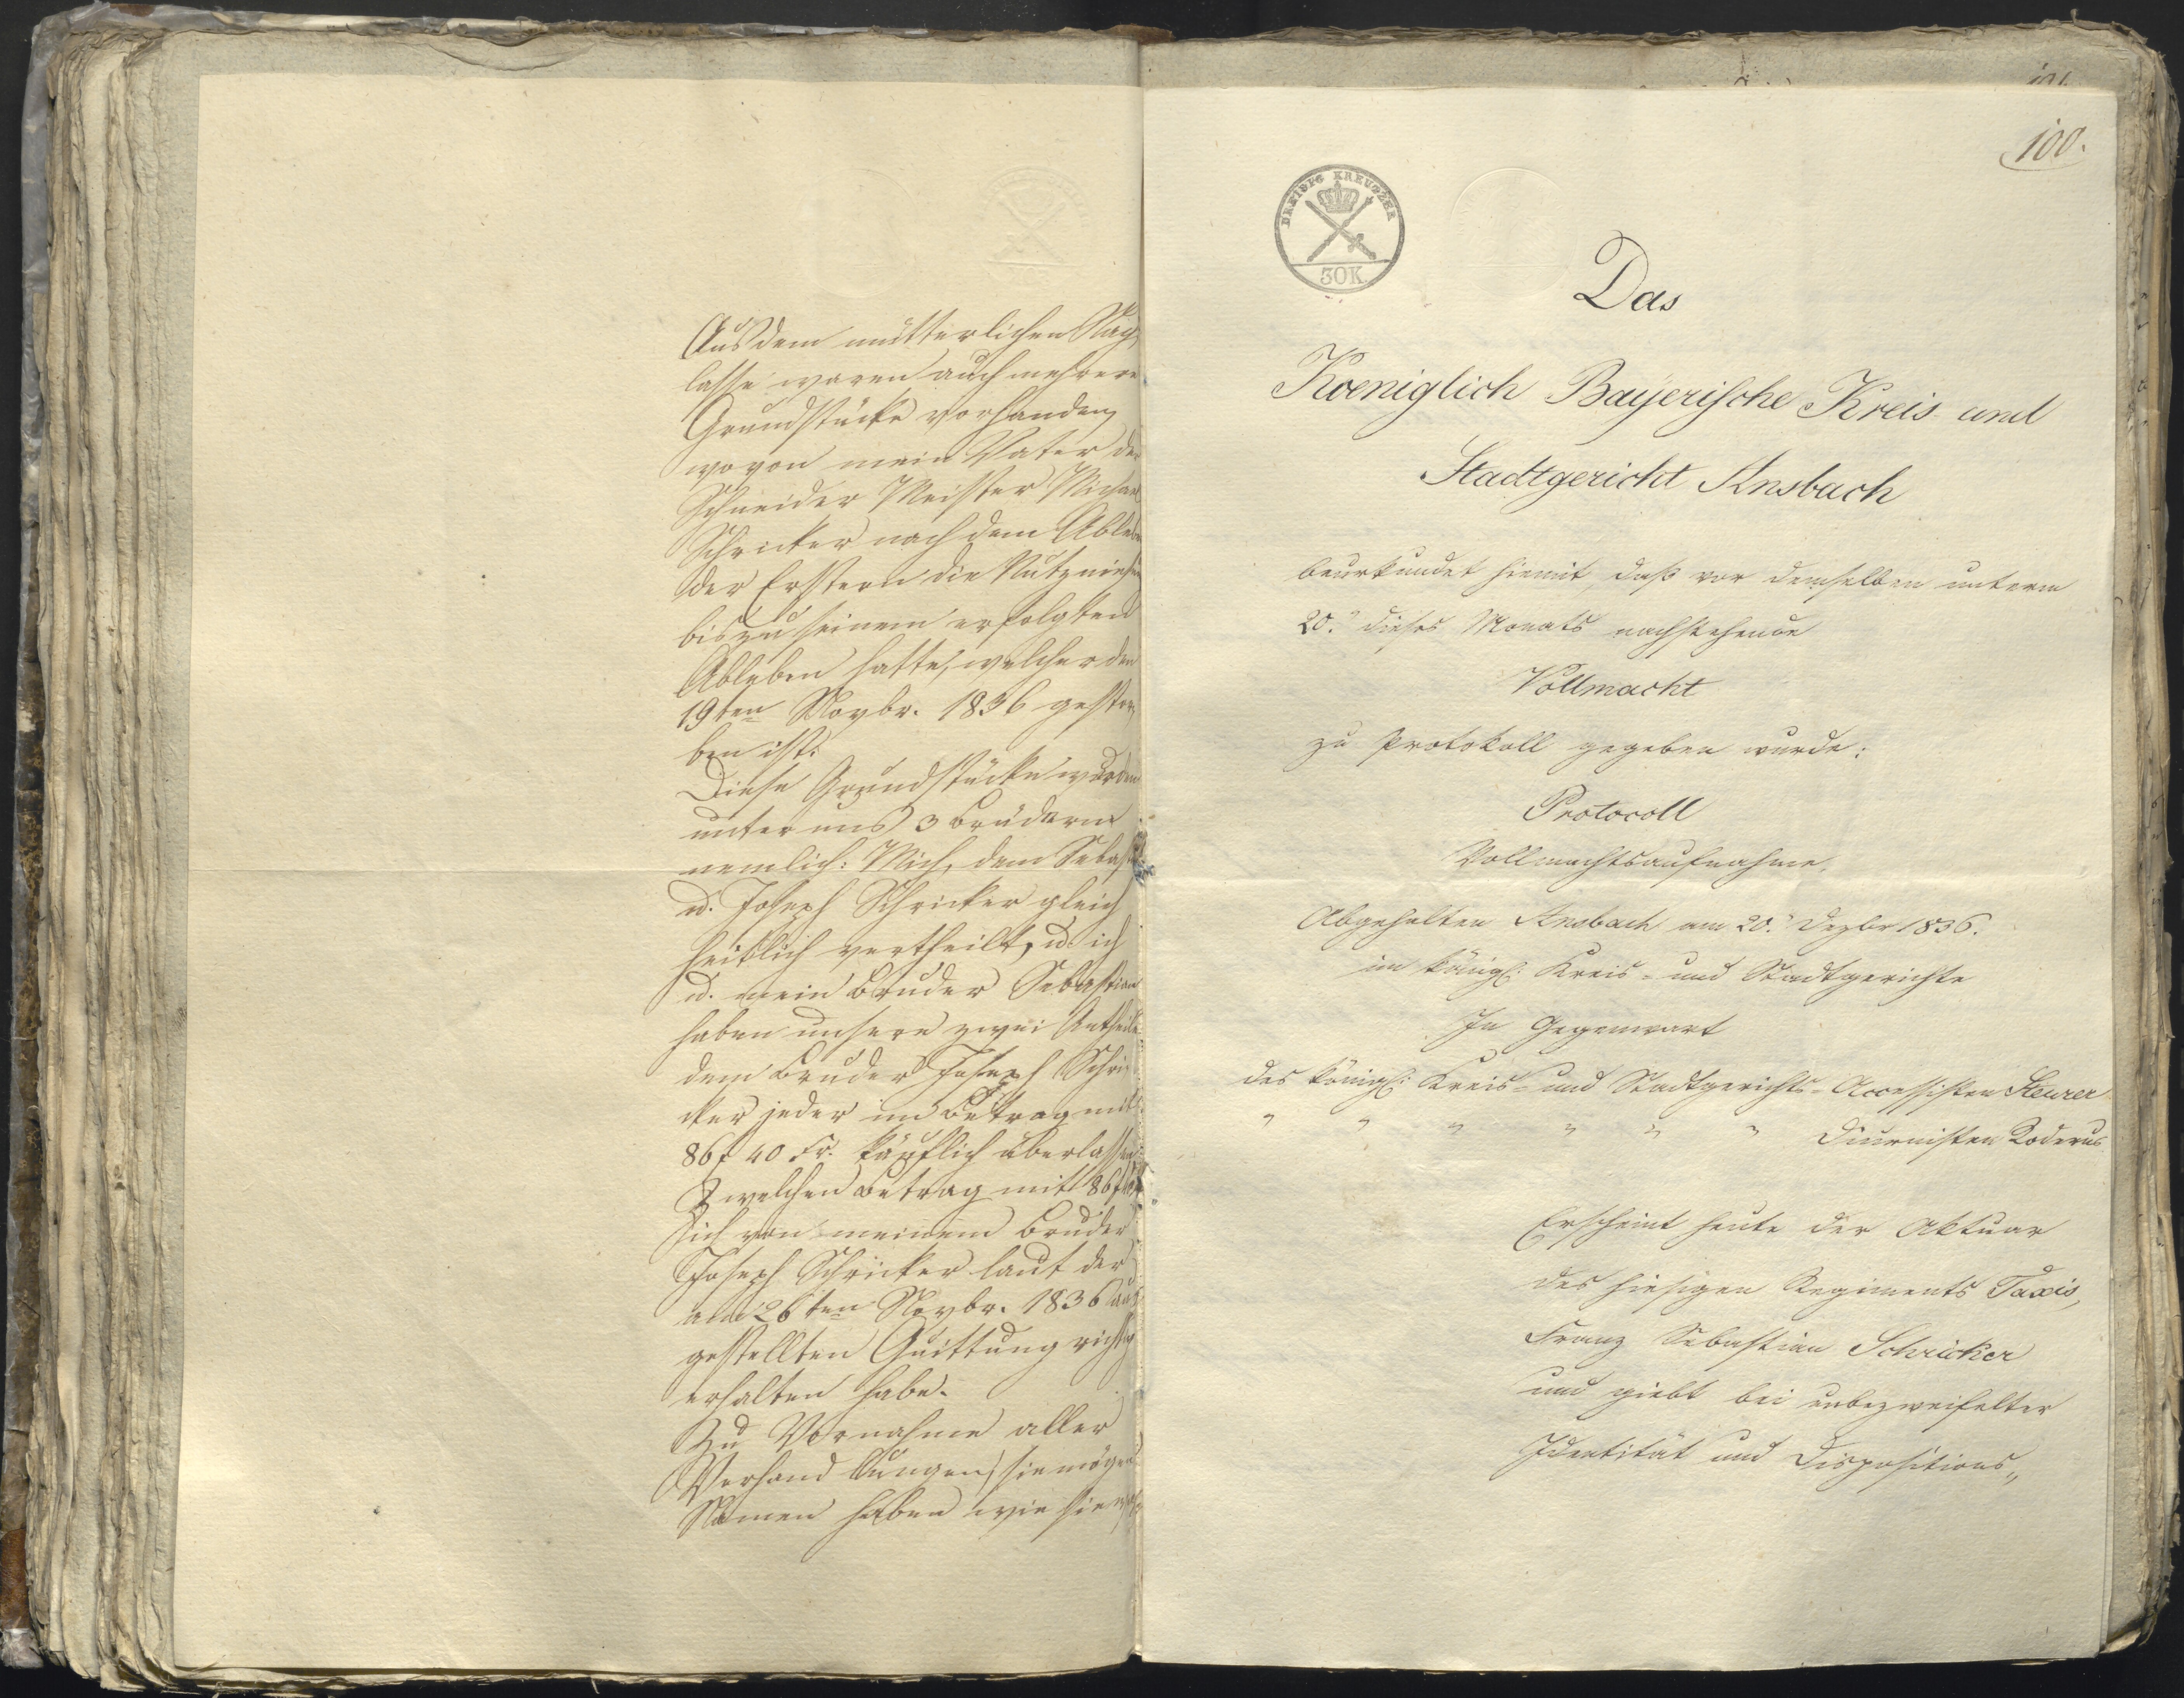 Aus dem mütterlichen Nach
lasse waren auch mehrere
Grundstücke vorhanden,
wovon mein Vater der
Schneider Meister Michael
Schricker nach dem Ableben
der Erstern die Nutznießun
bis zu seinem erfolgten
Ableben hatte, welcher den
19ten Novbr. 1836 gestor
ben ist.
Diese Grundstücke wurden
unter uns 3 Brüdern
nemlich: Mich, dem Sebast
u. Joseph Schricker gleich
heitlich vertheilt, u. ich
u. mein Bruder Sebastian
haben unsere zwei Antheile
dem Bruder Joseph Schri
cker jeder im Betrag mit
86 f 40 Xr. käuflich überlassen
welchen Betrag mit 86 f
ich von meinem Bruder
Joseph Schricker laut der
am 26ten Novbr. 1836 aus
gestellten Quittung richtig
erhalten habe.
Zu Vornahme aller
Verhandlungen, sie mögen
Namen haben wie sie
101.
100.
DREISIG KREUZER
30K
Das
Koeniglich Bayerische Kreis und
Stadtgericht Ansbach
beurkundet hiemit, daß vor demselben unterm
20.n dieses Monats nachstehende
Vollmacht
zu Protokoll gegeben wurde:
Protocoll
Vollmachtsaufnahme.
Abgehalten Ansbach am 20.n Dezbr 1836.
im königl: Kreis- und Stadtgerichte
In Gegenwart
des königl: Kreis- und Stadtgerichts-Accessisten Steurer
" " " " " " Diurnisten Koderus
Erscheint heute der Aktuar
des hiesigen Regiments Taxis,
Franz Sebastian Schricker
und giebt bei unbezweifelter
Identität und Dispositions„